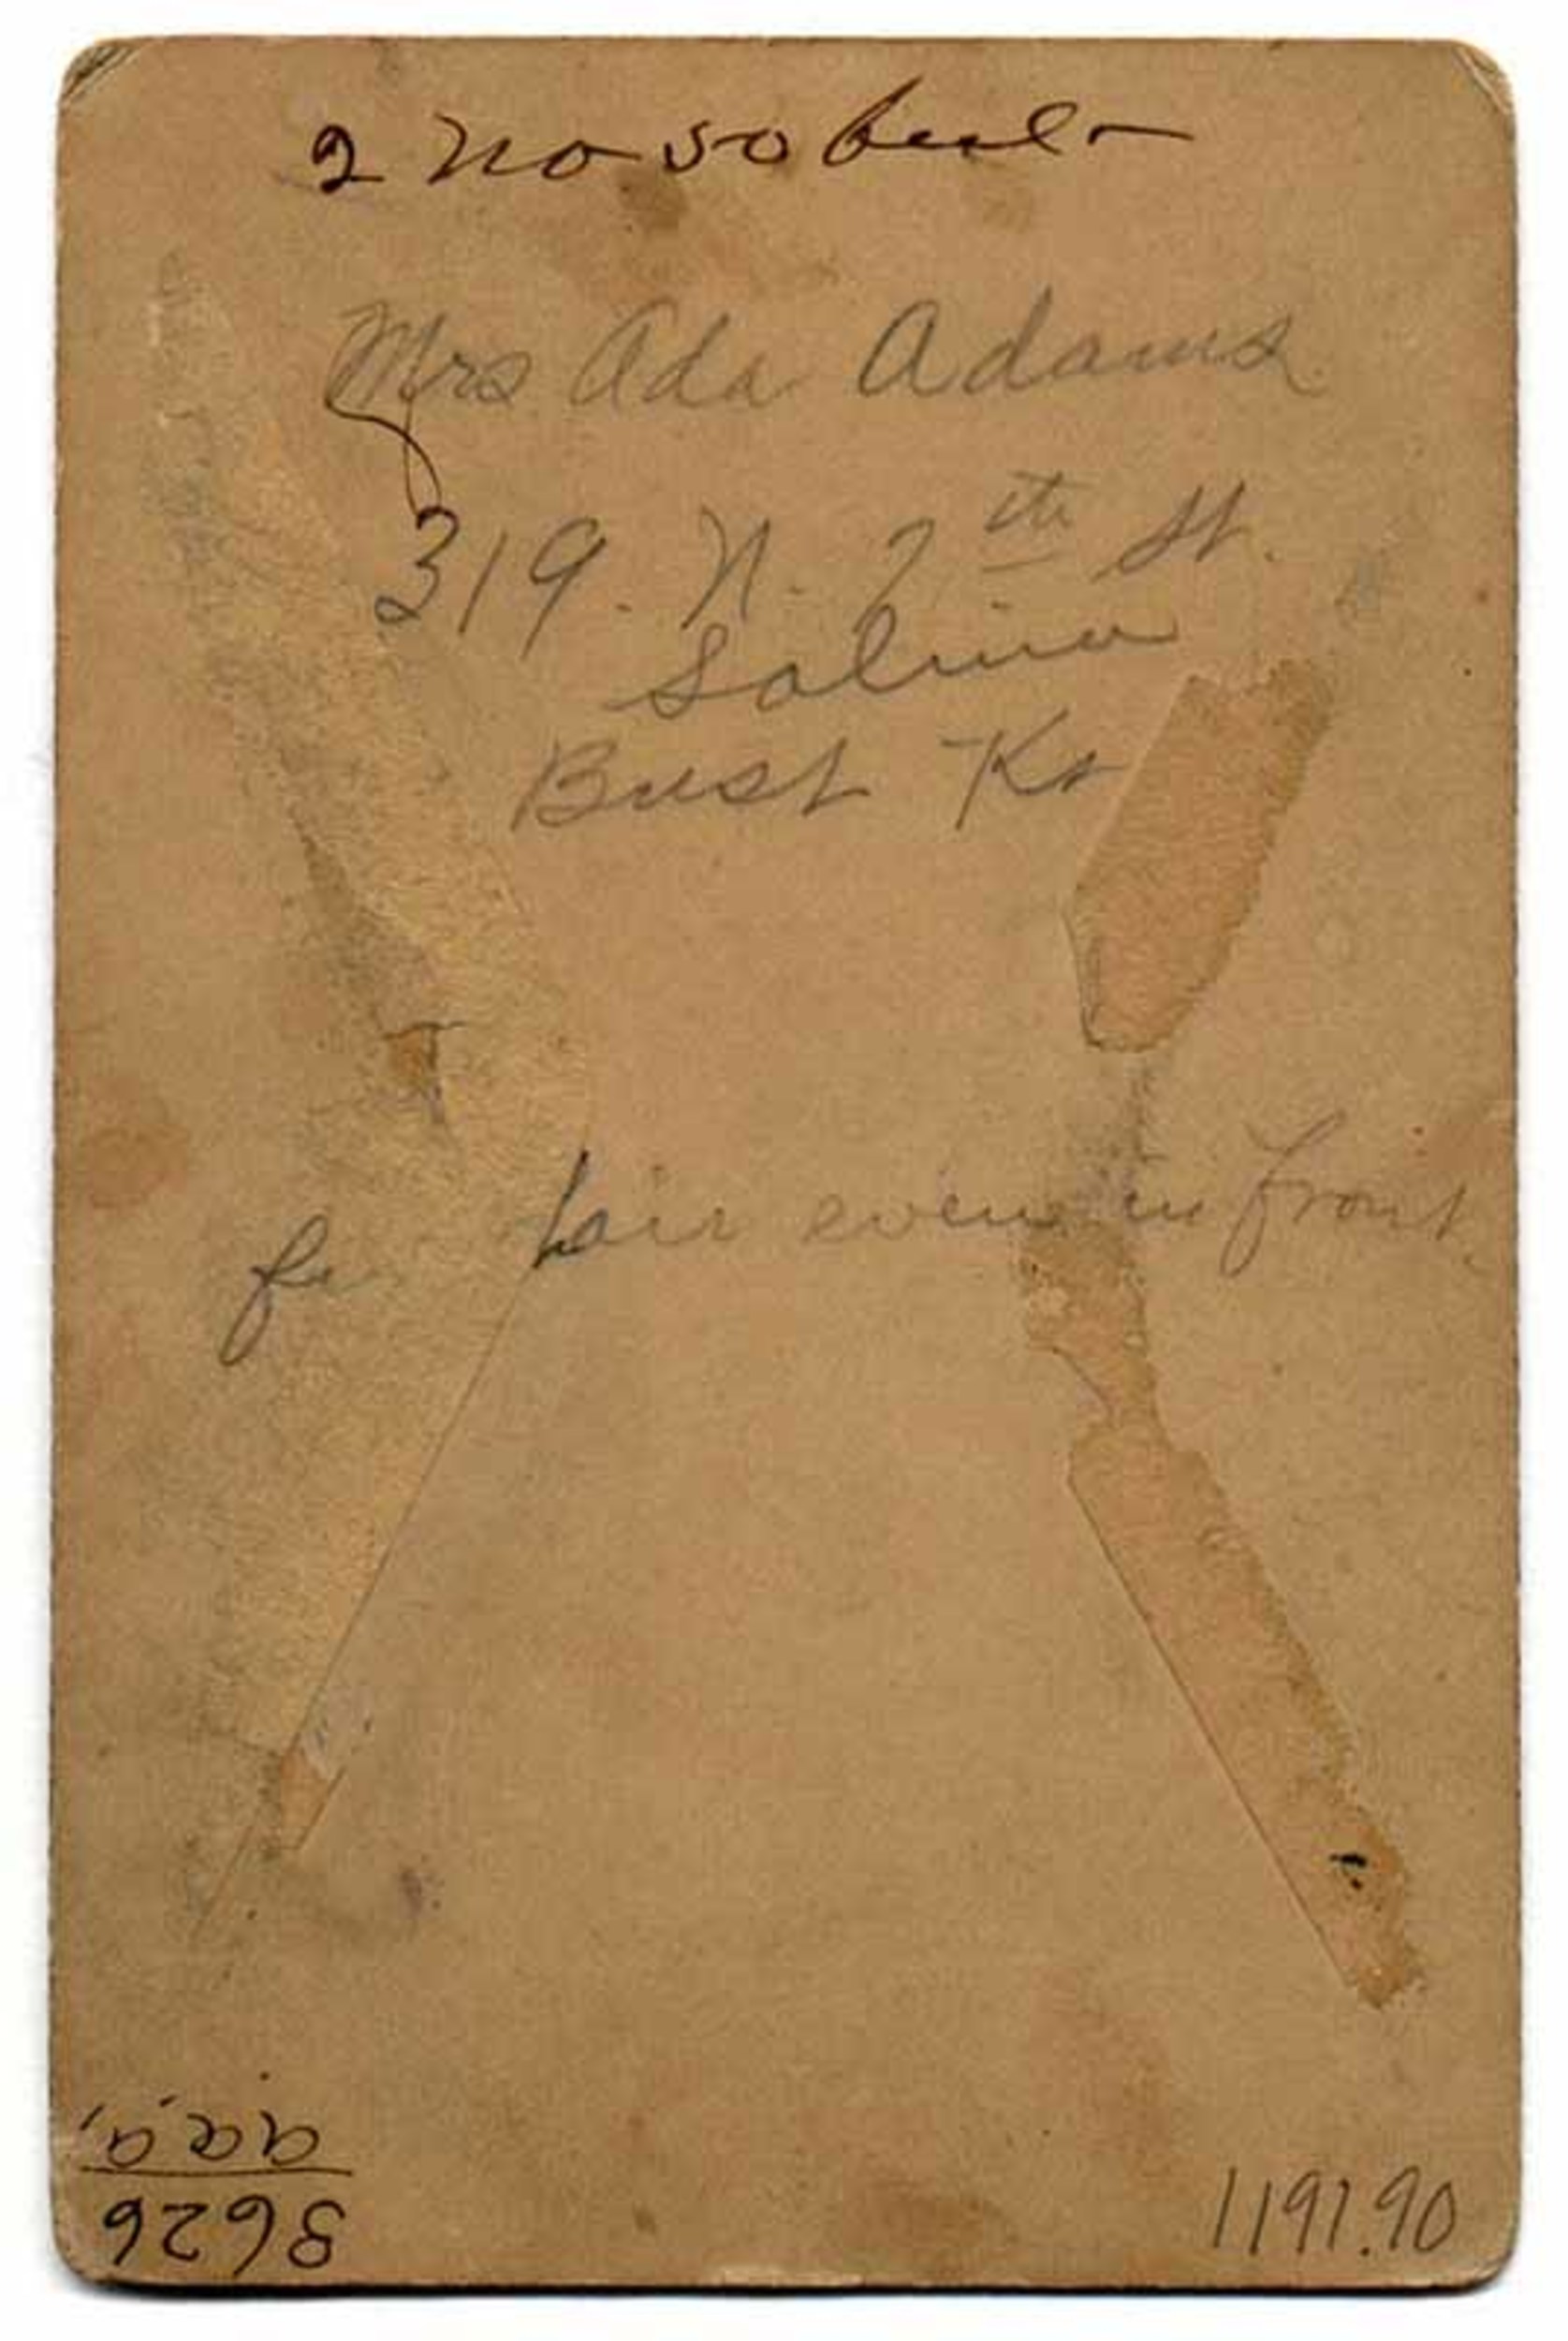 2 no 50 bust
Mrs Ada Adams
319. N. 7th St.
Salina
Bust Ks
hair even in front.
a.a.a.
3626
1191.90